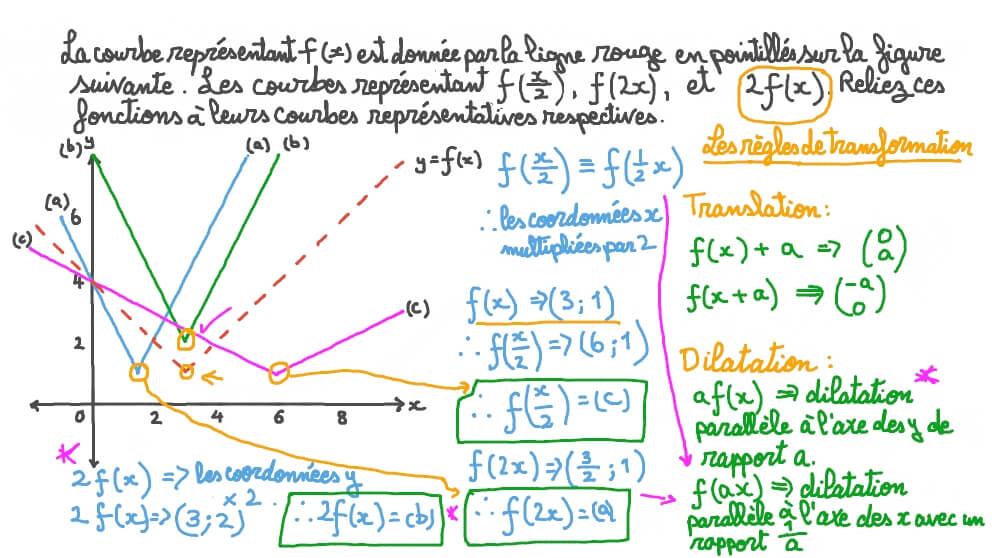 La courbe représentant f(x) est donnée par la ligne rouge en pointillés sur la figure
suivante. Les courbes représentant f(x/2), f(2x), et 2f(x). Reliez ces
fonctions à leurs courbes représentatives respectives.
Les règles de transformation
(b) y
(a) (b)
y=f(x)
(a)
(c)
6
4
2
(c)
0 2 4 6 8 x
f(x/2) = f(1/2 x)
∴ les coordonnées x
multipliées par 2
f(x) => (3;1)
∴ f(x/2) => (6;1)
∴ f(x/2) = (c)
f(2x) => (3/2;1)
∴ f(2x) = (a)
2f(x) => les coordonnées y
× 2.
2f(x) => (3;2)
∴ 2f(x) = (b)
Translation:
f(x) + a => (0 a)
f(x+a) => (-a 0)
Dilatation:
af(x) => dilatation
parallèle à l'axe des y de
rapport a.
f(ax) => dilatation
parallèle à l'axe des x avec un
rapport 1/a